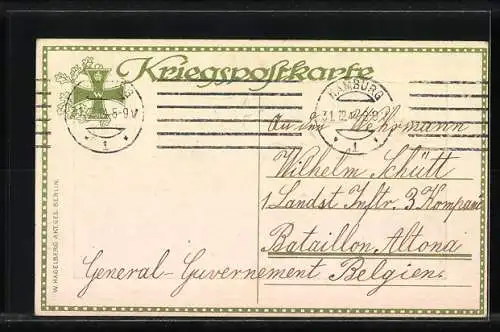 Kriegspostkarte
HAMBURG
5-9 V
1
31.12.
1
An den Wehrmann
Wilhelm Schütt
1 Landst Inftr. 3 Kompani
Bataillon Altona
General-Guvernement Belgien
W. HAGELBERG AKT. GES. BERLIN.